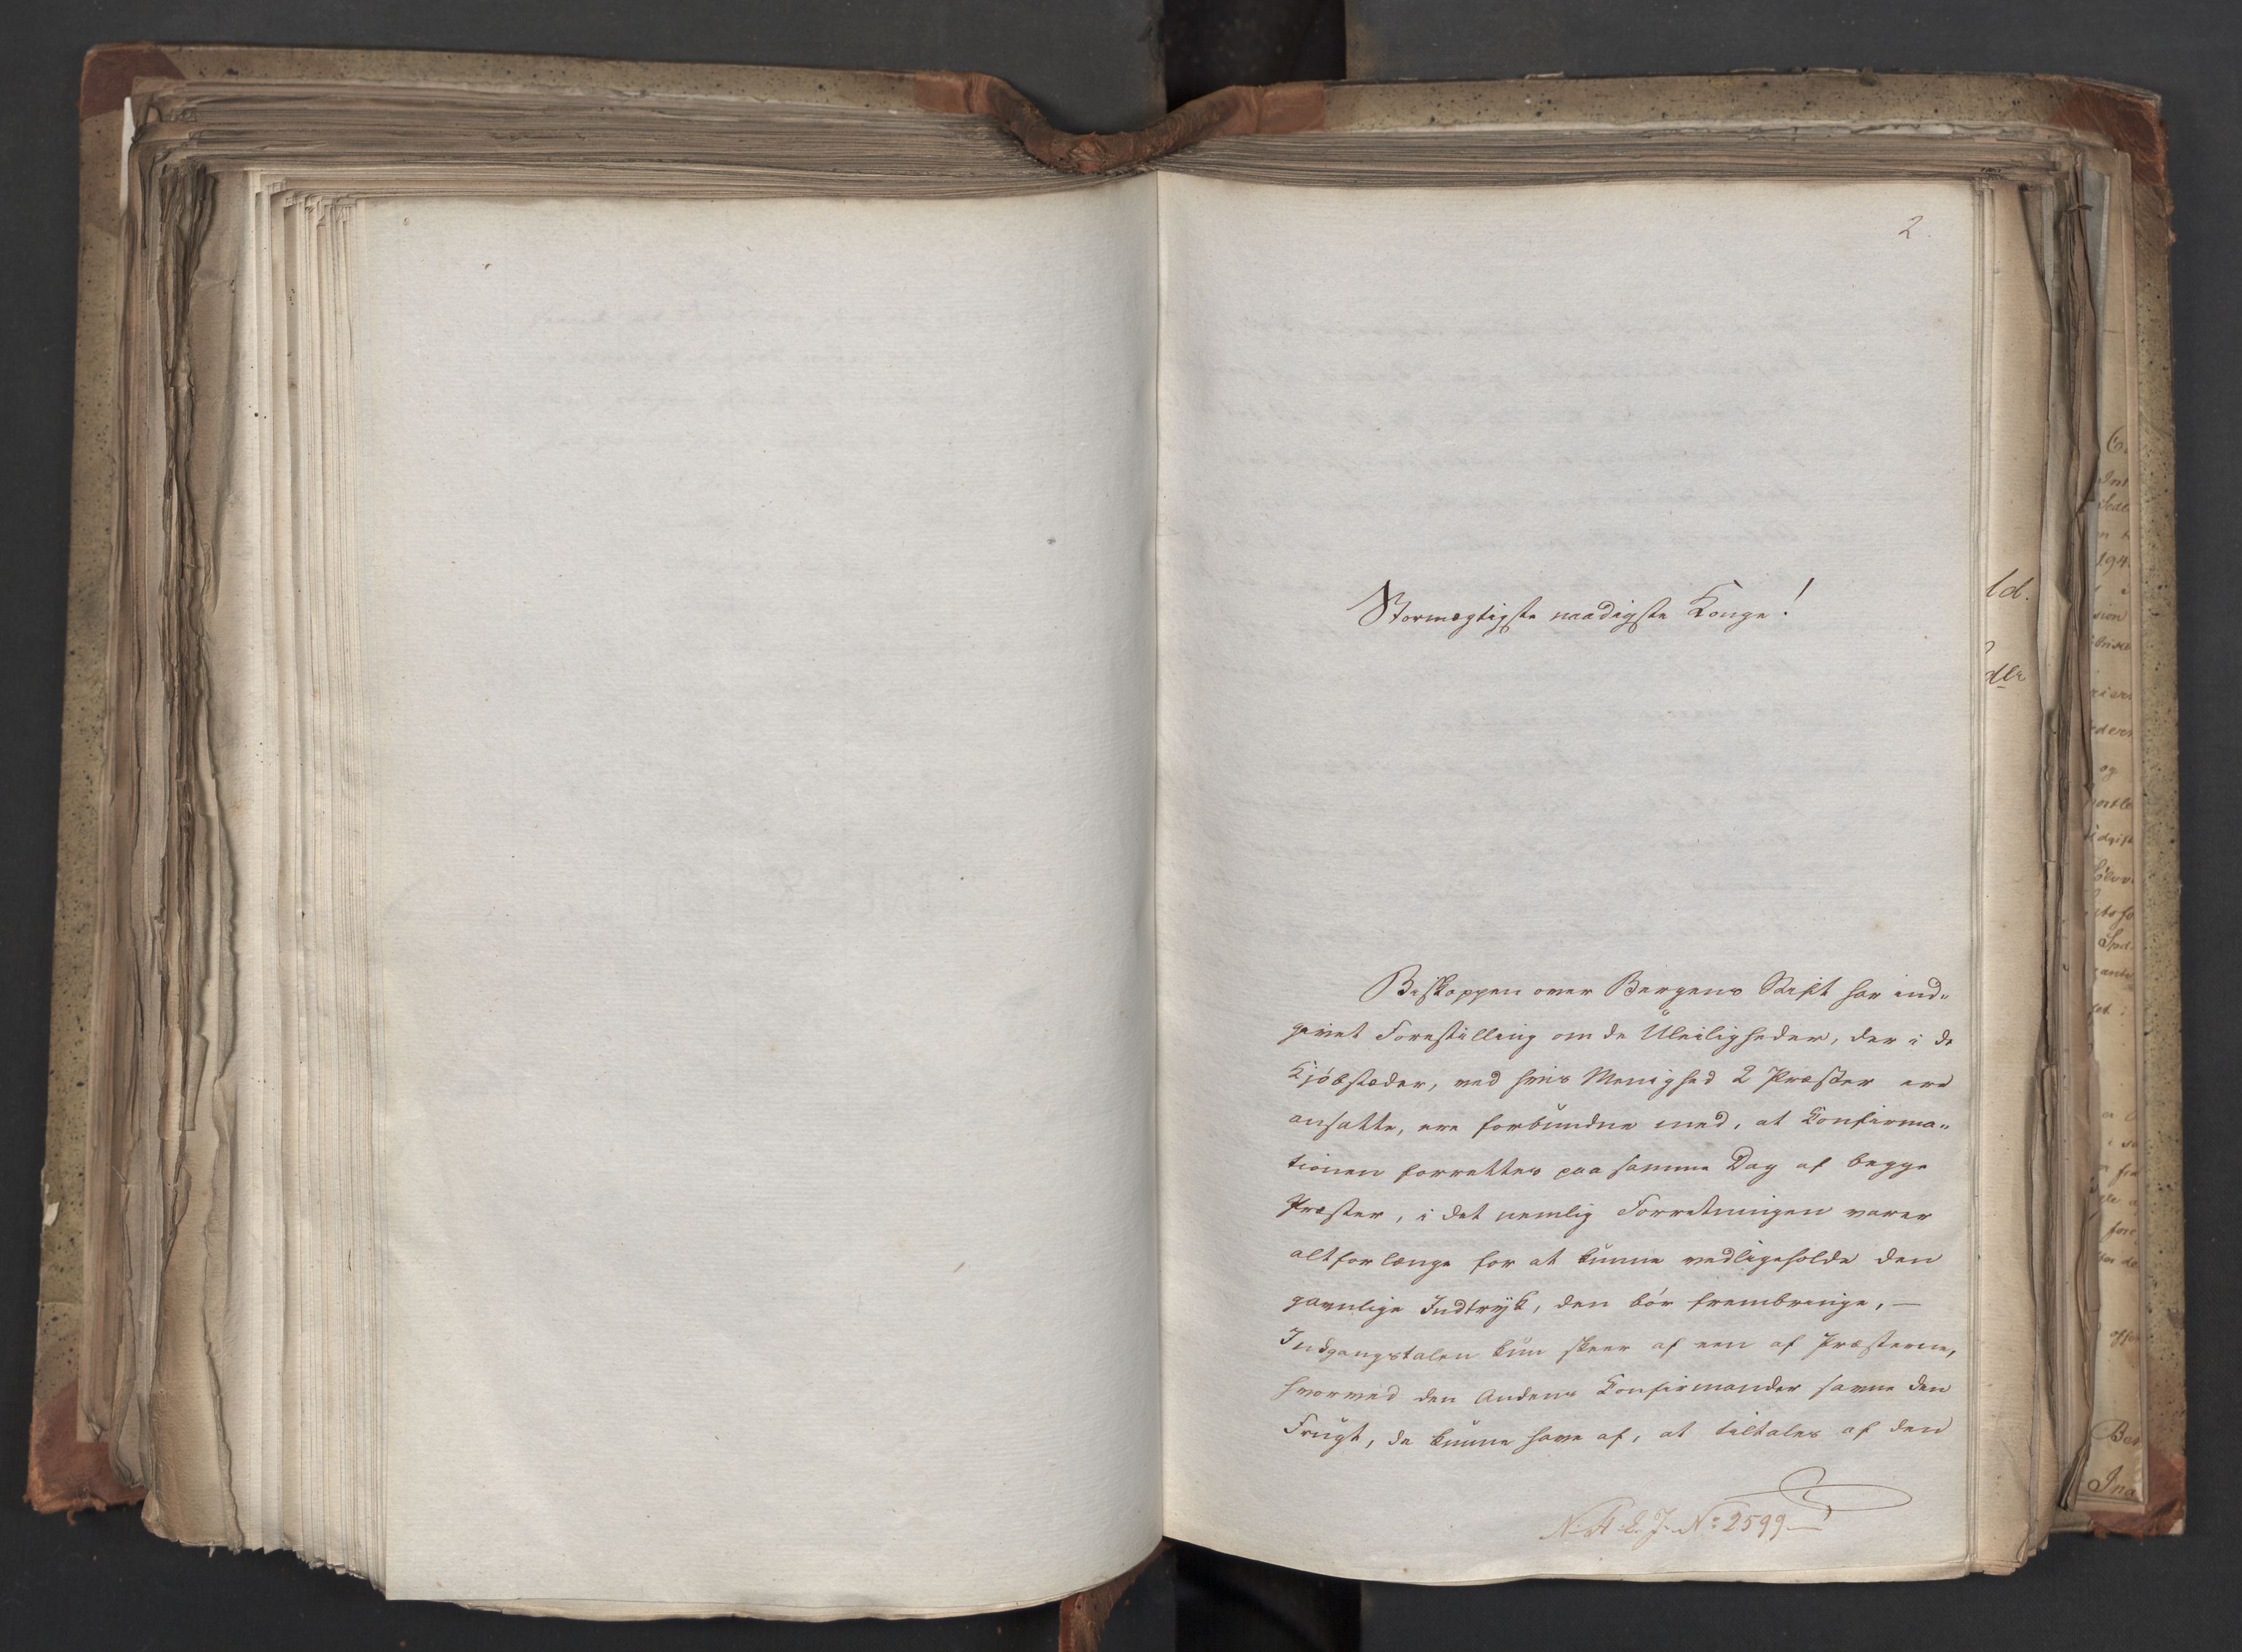 2.
Stormægtigste naadigste Konge!
Biskoppen over Bergens Stift har ind„
givet Forestilling om de Uleiligheder, der i de
Kjøbstæder, ved hvis Menighed 2 Præster ere
ansatte, ere forbundne med, at Confirma„
tionen forrettes paa samme Dag af begge
Præster, i det nemlig Forretningen varer
altfor længe for at kunne vedligeholde den
gavnlige Indtryk, den bør frembringe, —
Indgangstalen kun skeer af een af Præsterne,
hvorved den Andens Confirmander savne den
Frugt, de kunne have af, at tiltales af den
N. A. L. J. No: 2599 —
ld.
dle